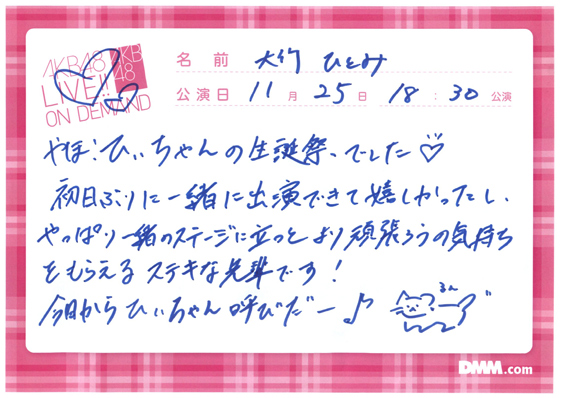 AKB48
LIVE!!
ON DEMAND
AKB
48
名前 大竹 ひとみ
公演日 11月 25日 18:30公演
やほ!ひぃちゃんの生誕祭、でした♡
初日ぶりに一緒に出演できて嬉しかったし、
やっぱり一緒のステージに立つとより頑張ろうの気持ち
をもらえるステキな先輩です!
今日からひぃちゃん呼びだー♪
るん
DMM.com